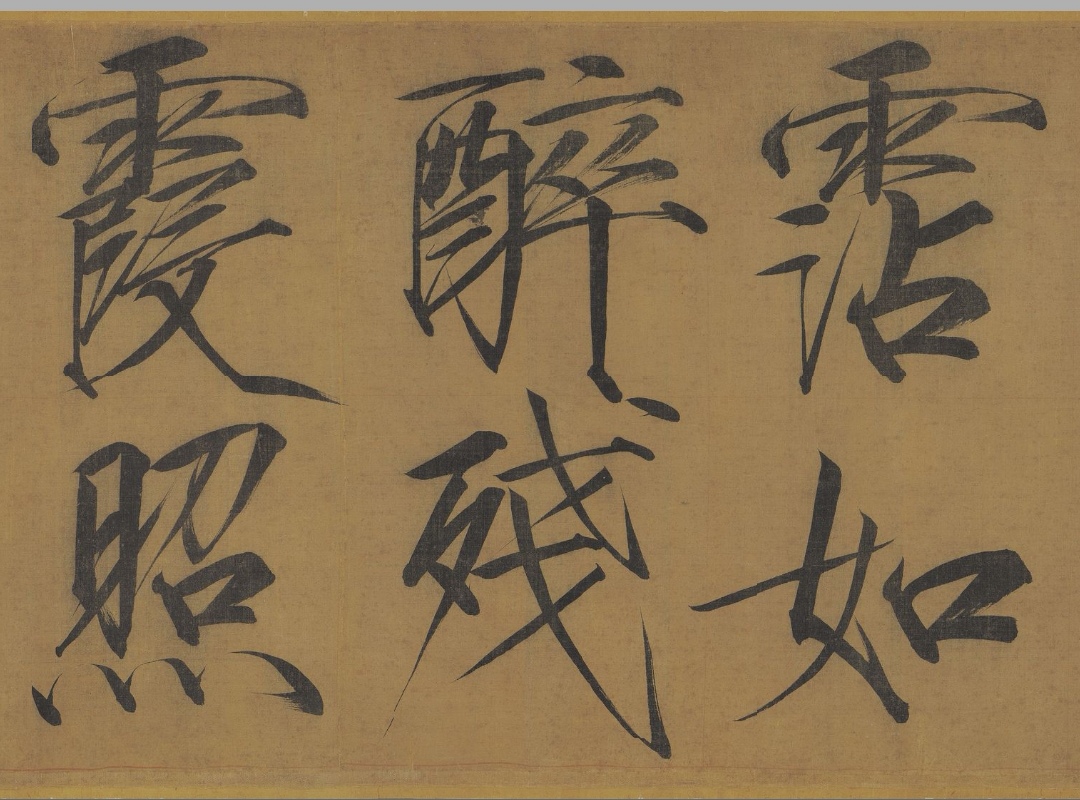 霑如
醉殘
霞照